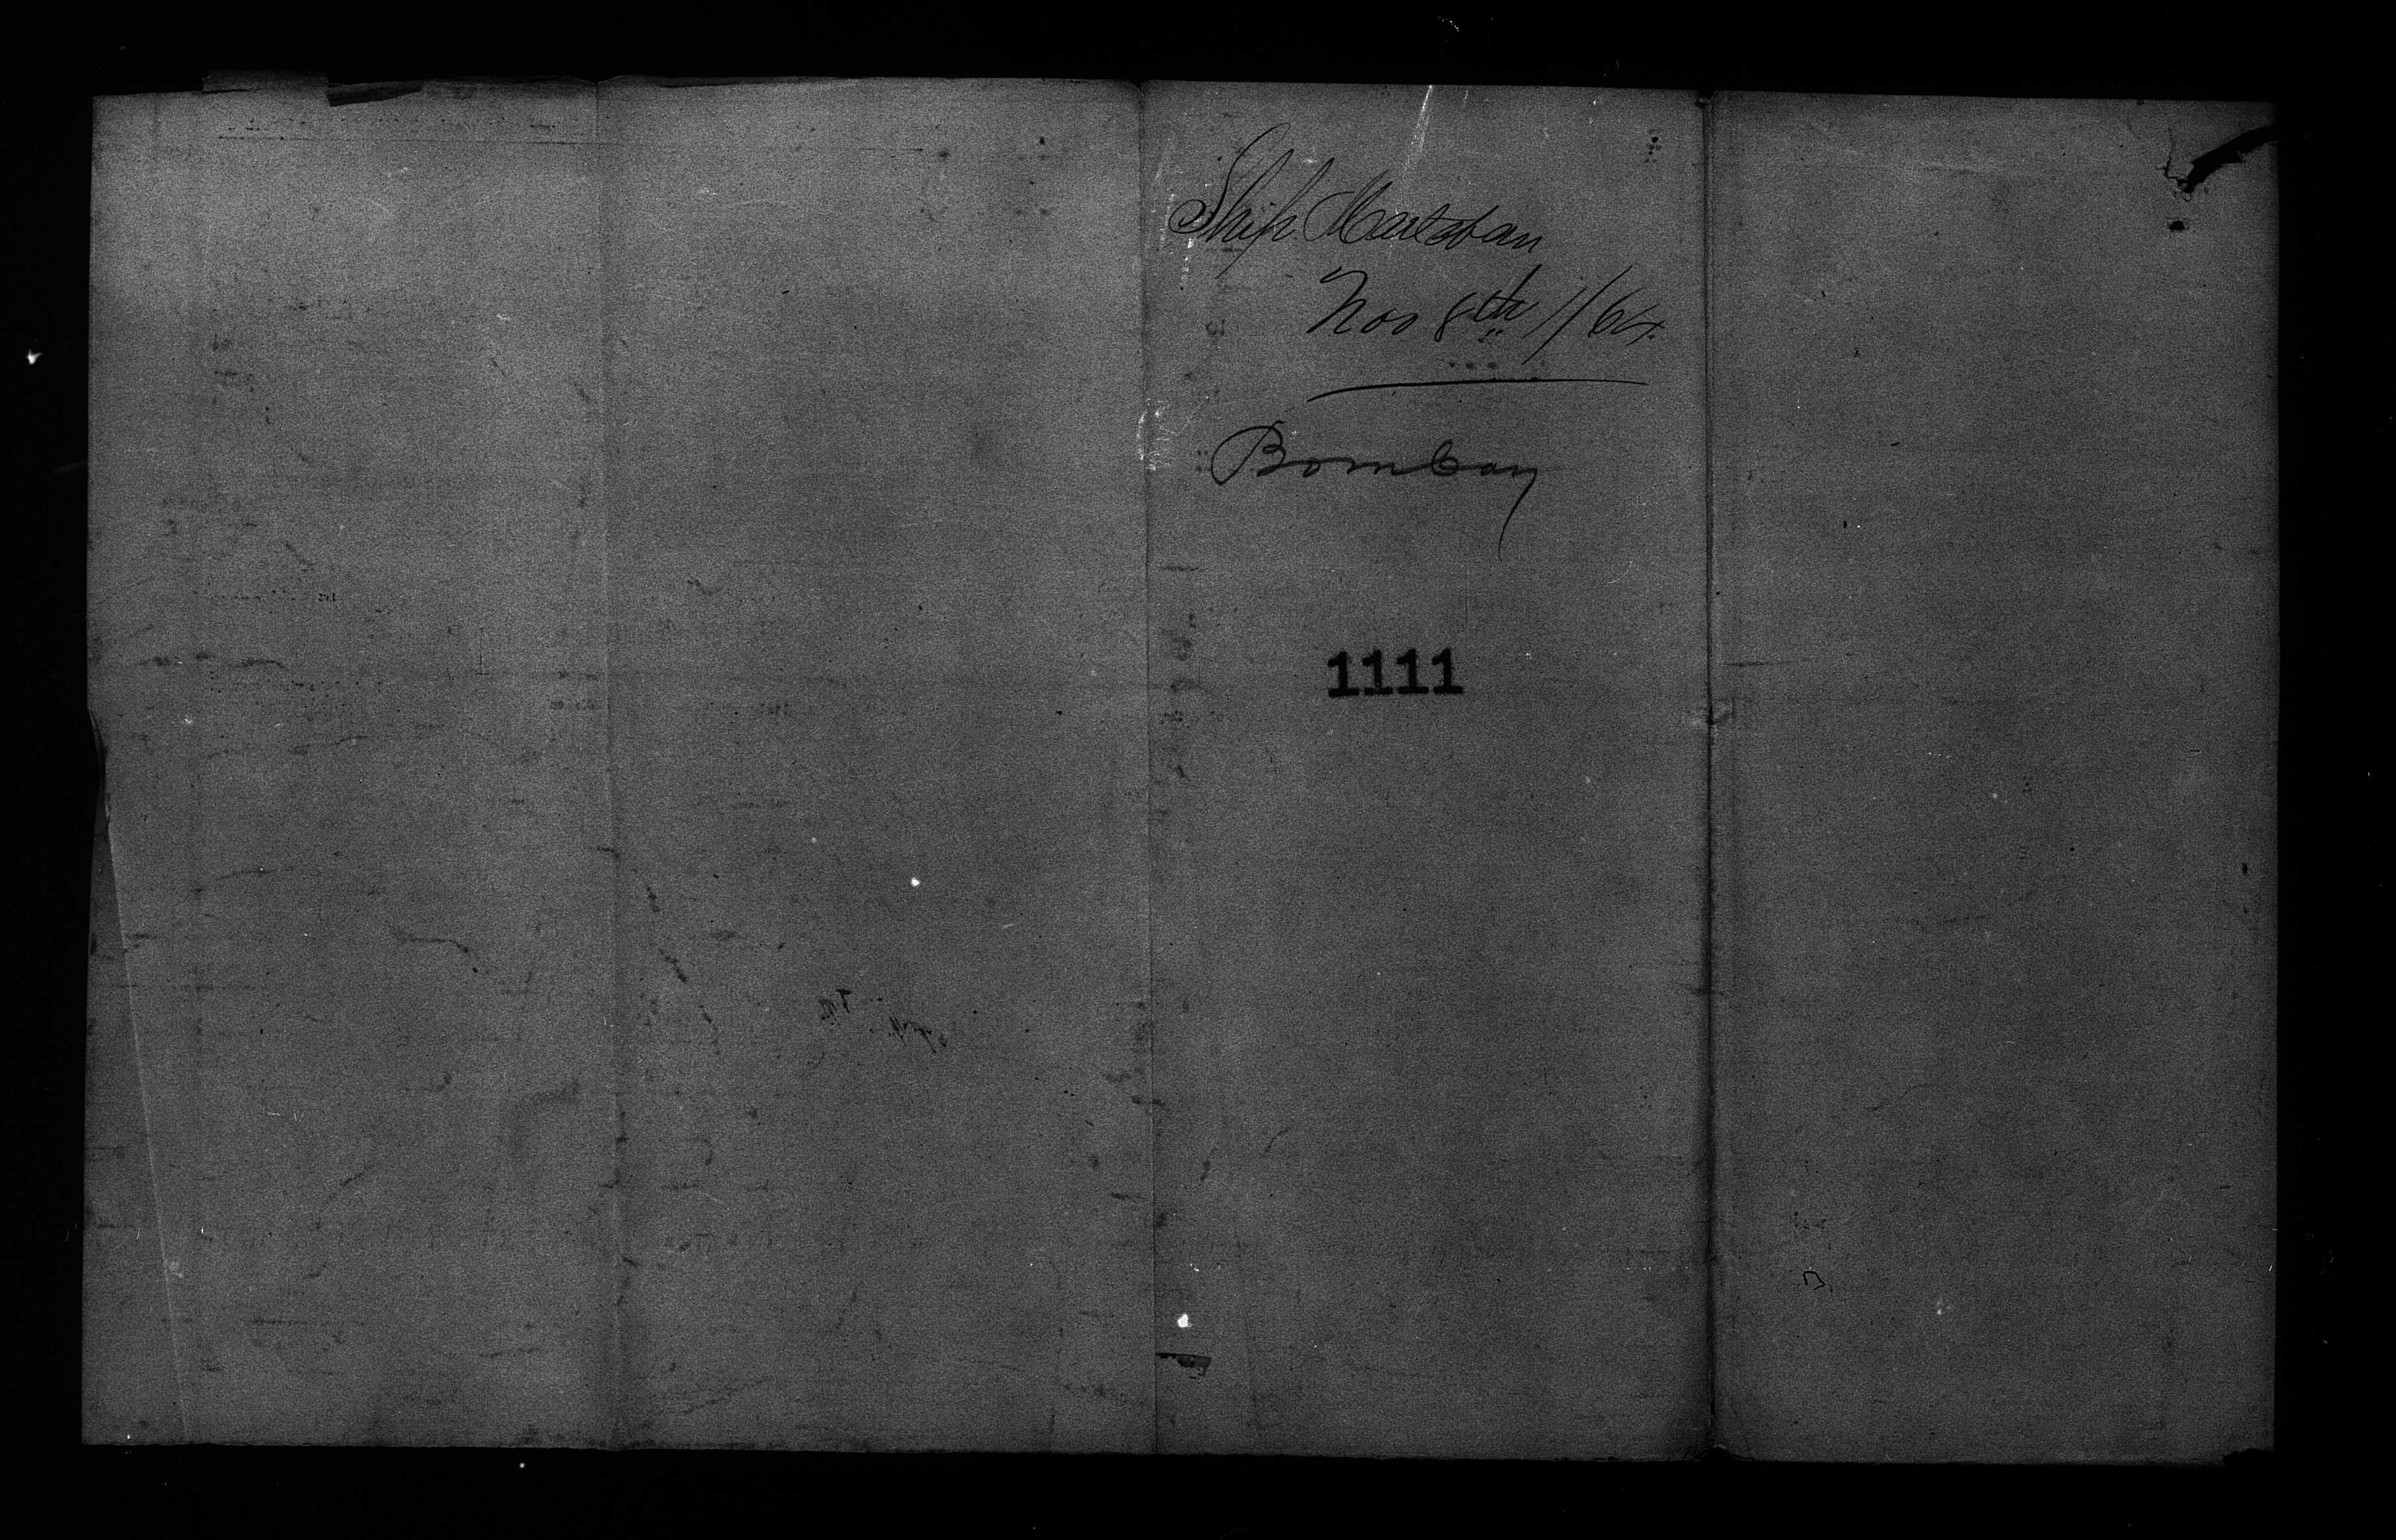 Ship Martaban
Nov 8th //64.
Bombay
1111